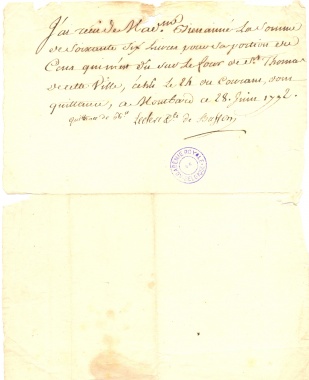 J'ai reçu de Mad.me la somme
de soixante six livres pour sa portion du
Cens qui m'est du sur le four de St. Thomas
de cette Ville, échu le 24 du Courant, dont
quittance, a Montbard ce 28. Juin 1792.
quittance de 66#
Leclerc de Buffon